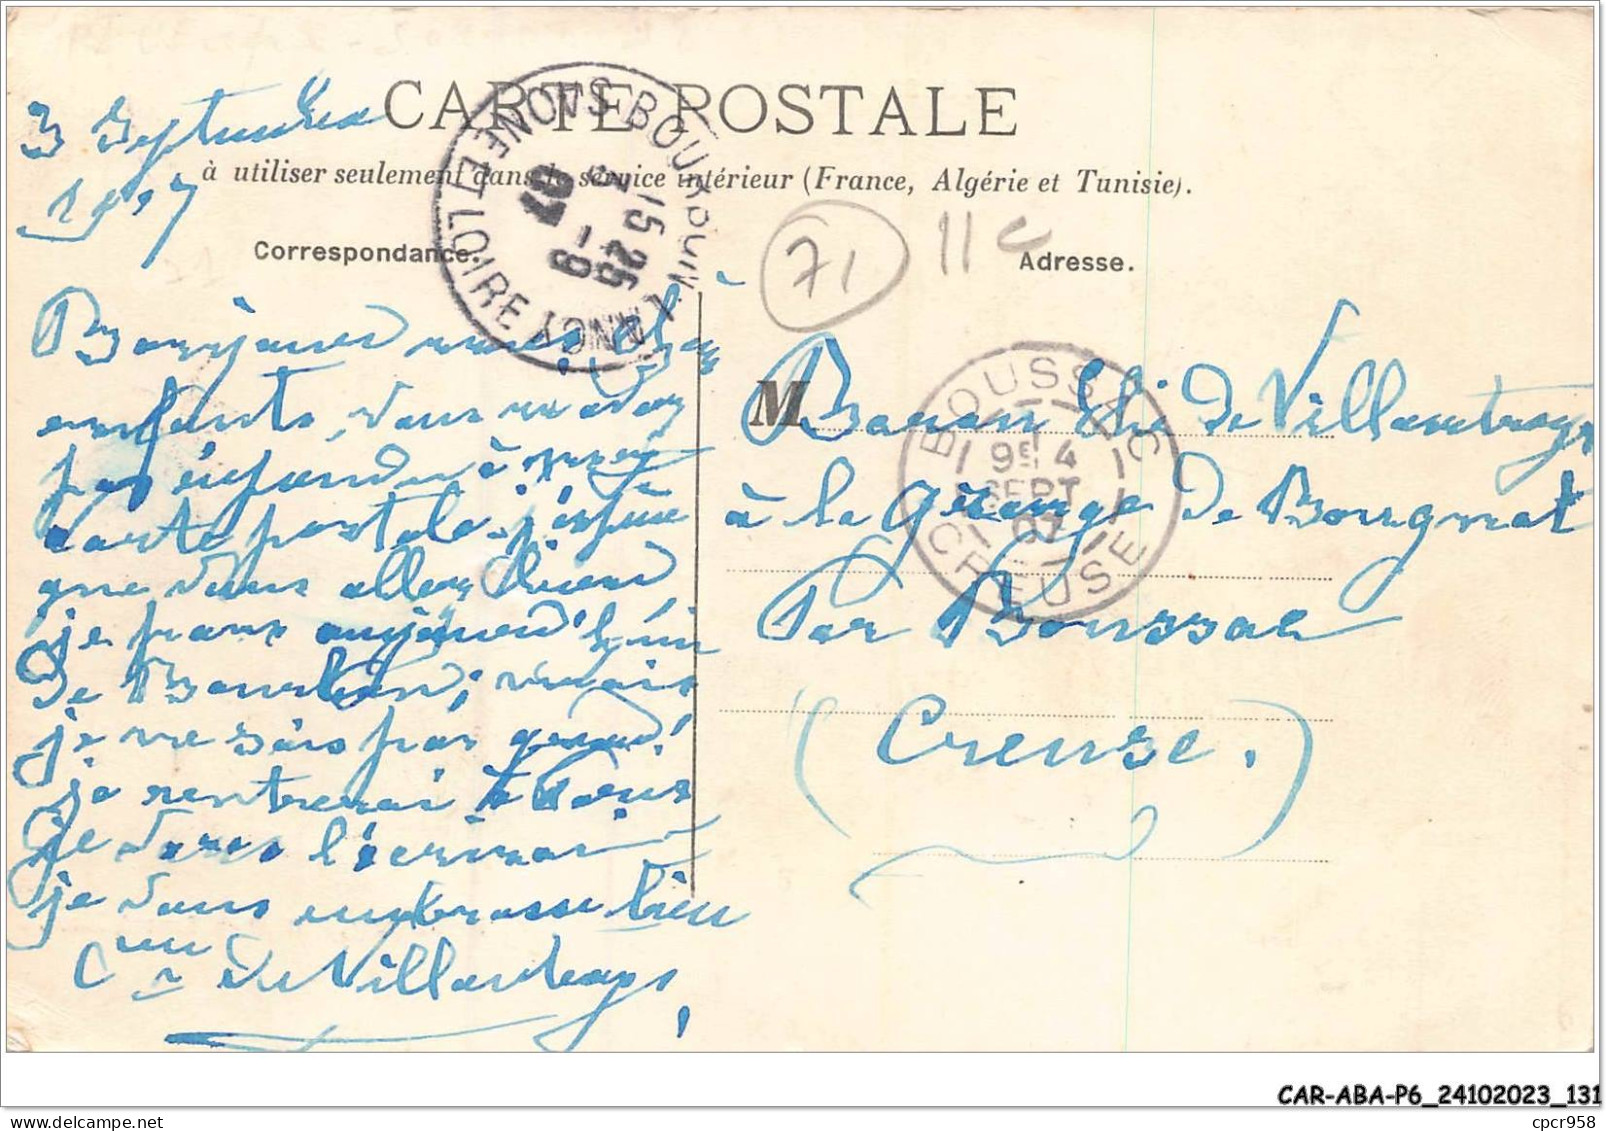 CARTE POSTALE
à utiliser seulement dans le service intérieur (France, Algérie et Tunisie).
3 Septembre
1907
Correspondance.
Adresse.
71
11
BOURBON-LANCY SAONE ET LOIRE
15 25
3 - 9
07
BOUSSAC CREUSE
9E 4
SEPT
07
Bonjour mes chers
enfants, vous ne devez
pas répondu à ma
carte postale. j'espère
que vous allez bien
je pars aujourd'hui
de Bourbon; mais
je ne sais pas quand
je rentrerai
je vous l'écrirai
je vous embrasse bien
de Villantroys
M Baron de Villantroys
à la Grange de Bourgnat
Par Boussac
(Creuse.)
CAR-ABA-P6_24102023_131
cpcr958